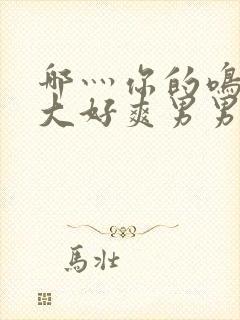 哪灬你的鸣
大好爽男男
馬壮